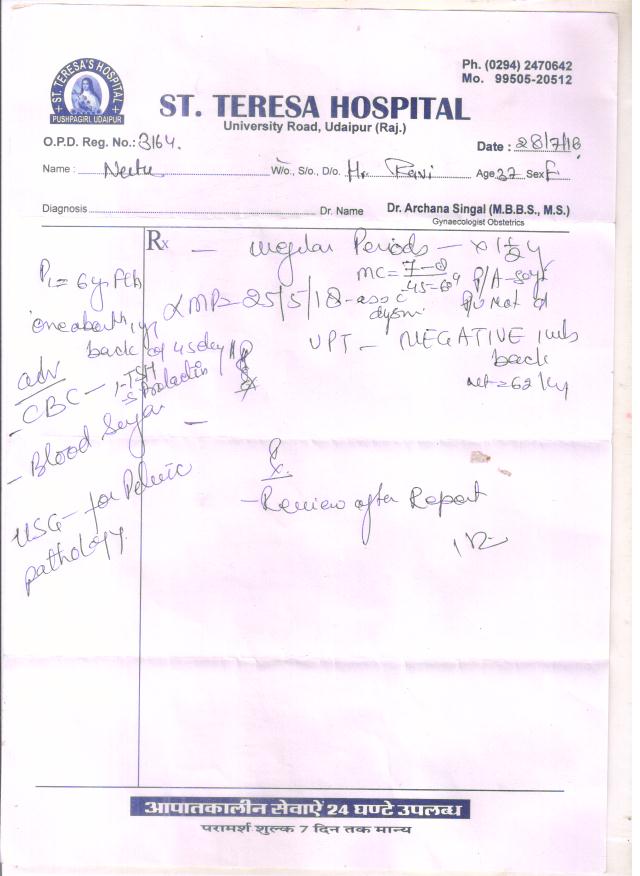 ST. TERESA'S HOSPITAL
PUSHPAGIRI, UDAIPUR
Ph. (0294) 2470642
Mo. 99505-20512
ST. TERESA HOSPITAL
University Road, Udaipur (Raj.)
O.P.D. Reg. No.: 3164. Date : 28/7/18
Name : Neetu W/o., S/o., D/o. Ravi Age 37 Sex F
Diagnosis Dr. Name Dr. Archana Singal (M.B.B.S., M.S.)
Gynaecologist Obstetrics
Rx
Periods - x 1 1/2 y
MC=
P/A-soft
P1 = 6y
LMP= 25/5/18
one
back of 45 day
UPT - NEGATIVE
back
wt=62 kg
adv
- CBC - TSH
Prolactin
- Blood Sugar
USG - for Pelvic
pathology.
Rx
- Review after Report
आपातकालीन सेवाऐं 24 घण्टे उपलब्ध
परामर्श शुल्क 7 दिन तक मान्य